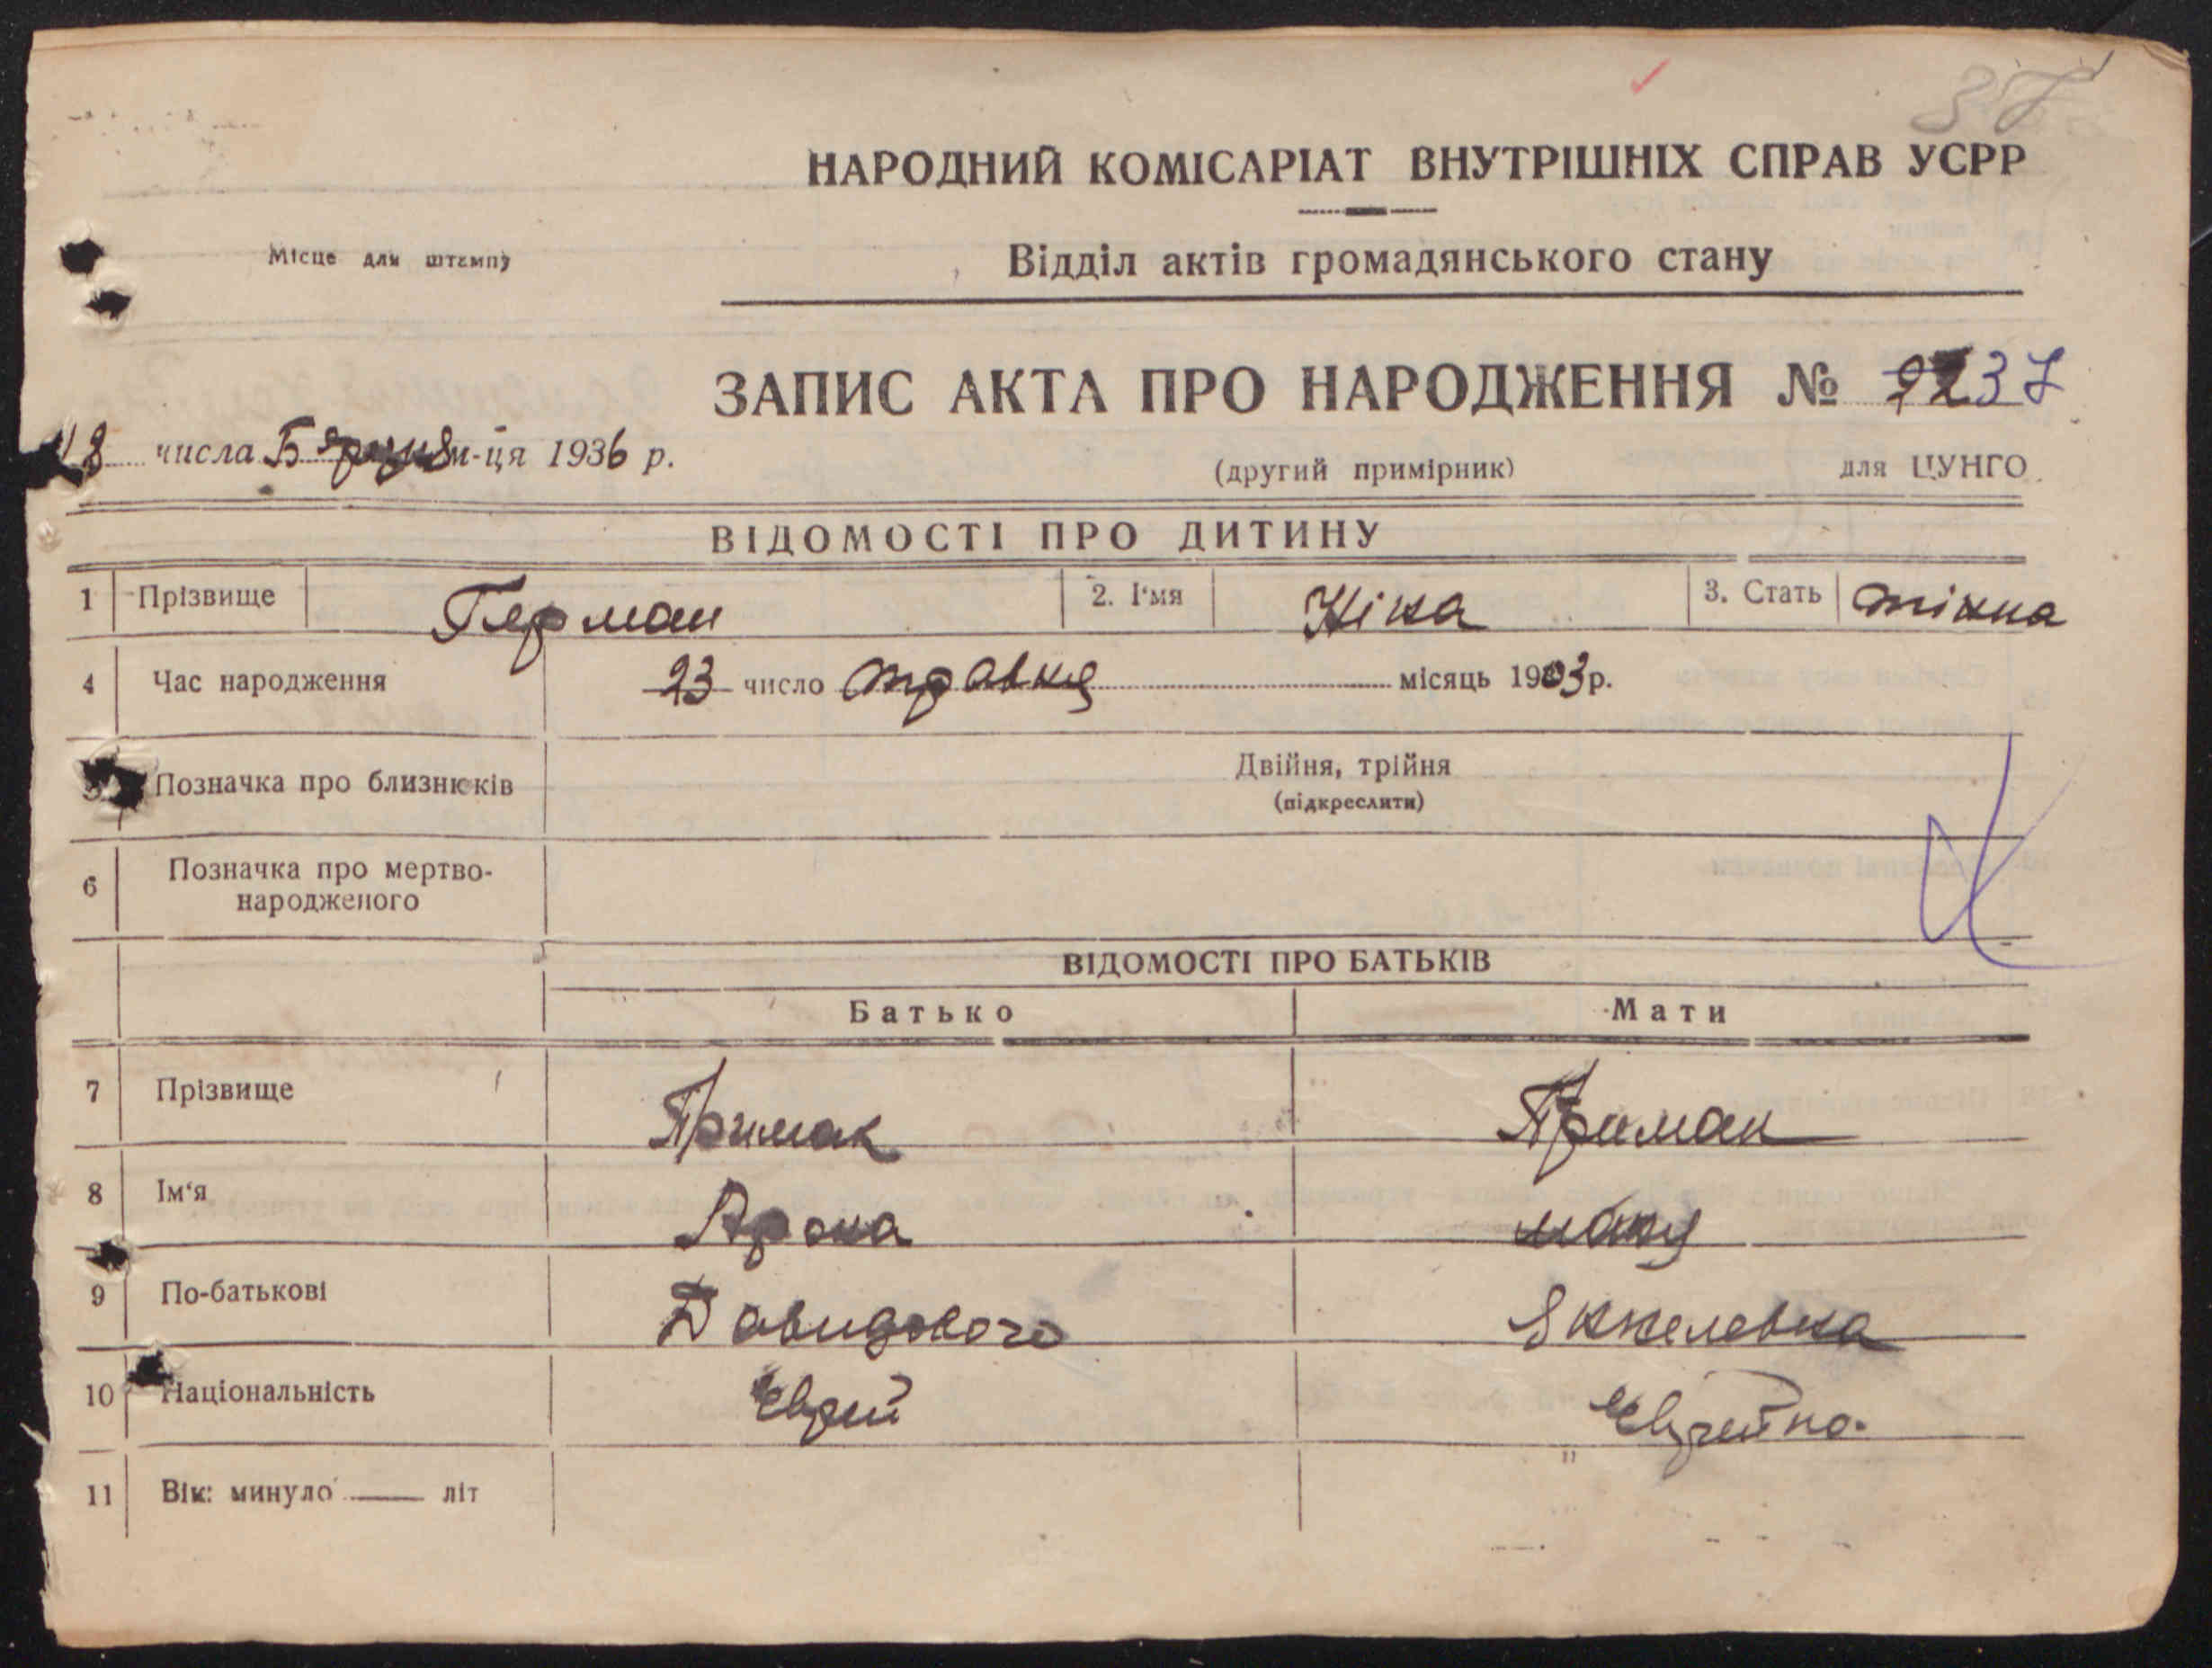 37
НАРОДНИЙ КОМІСАРІАТ ВНУТРІШНІХ СПРАВ УСРР
Місце для штемпу
Відділ актів громадянського стану
ЗАПИС АКТА ПРО НАРОДЖЕННЯ № 37
18 числа Березня м-ця 1936 р.
(другий примірник) для ЦУНГО
ВІДОМОСТІ ПРО ДИТИНУ
1 Прізвище Герман 2. І'мя Ніка 3. Стать жінка
4 Час народження 23 число травня місяць 1903 р.
5 Позначка про близнюків Двійня, трійня
(підкреслити)
6 Позначка про мертво-
народженого
ВІДОМОСТІ ПРО БАТЬКІВ
Батько Мати
7 Прізвище Примак Примак
8 Ім'я Арона
9 По-батькові Давидового
10 Національність Єврей Єврейка
11 Вік: минуло літ